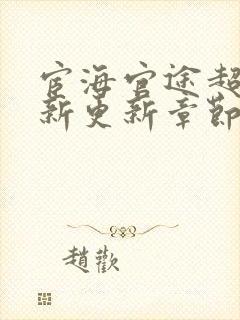 宦海官途超
新更新章節
趙歡